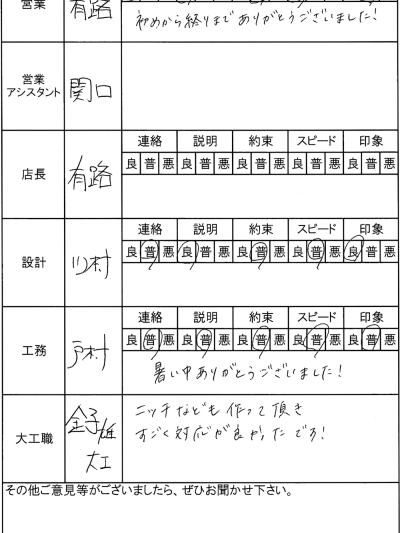 営業 有路
初めから終りまでありがとうございました!
営業
アシスタント 関口
連絡 説明 約束 スピード 印象
店長 有路 良 普 悪 良 普 悪 良 普 悪 良 普 悪 良 普 悪
連絡 説明 約束 スピード 印象
設計 川村 良 普 悪 良 普 悪 良 普 悪 良 普 悪 良 普 悪
連絡 説明 約束 スピード 印象
工務 戸村 良 普 悪 良 普 悪 良 普 悪 良 普 悪 良 普 悪
暑い中ありがとうございました!
大工職 金子 大工
ニッチなども作って頂き
すごく対応が良かったです!
その他ご意見等がございましたら、ぜひお聞かせ下さい。